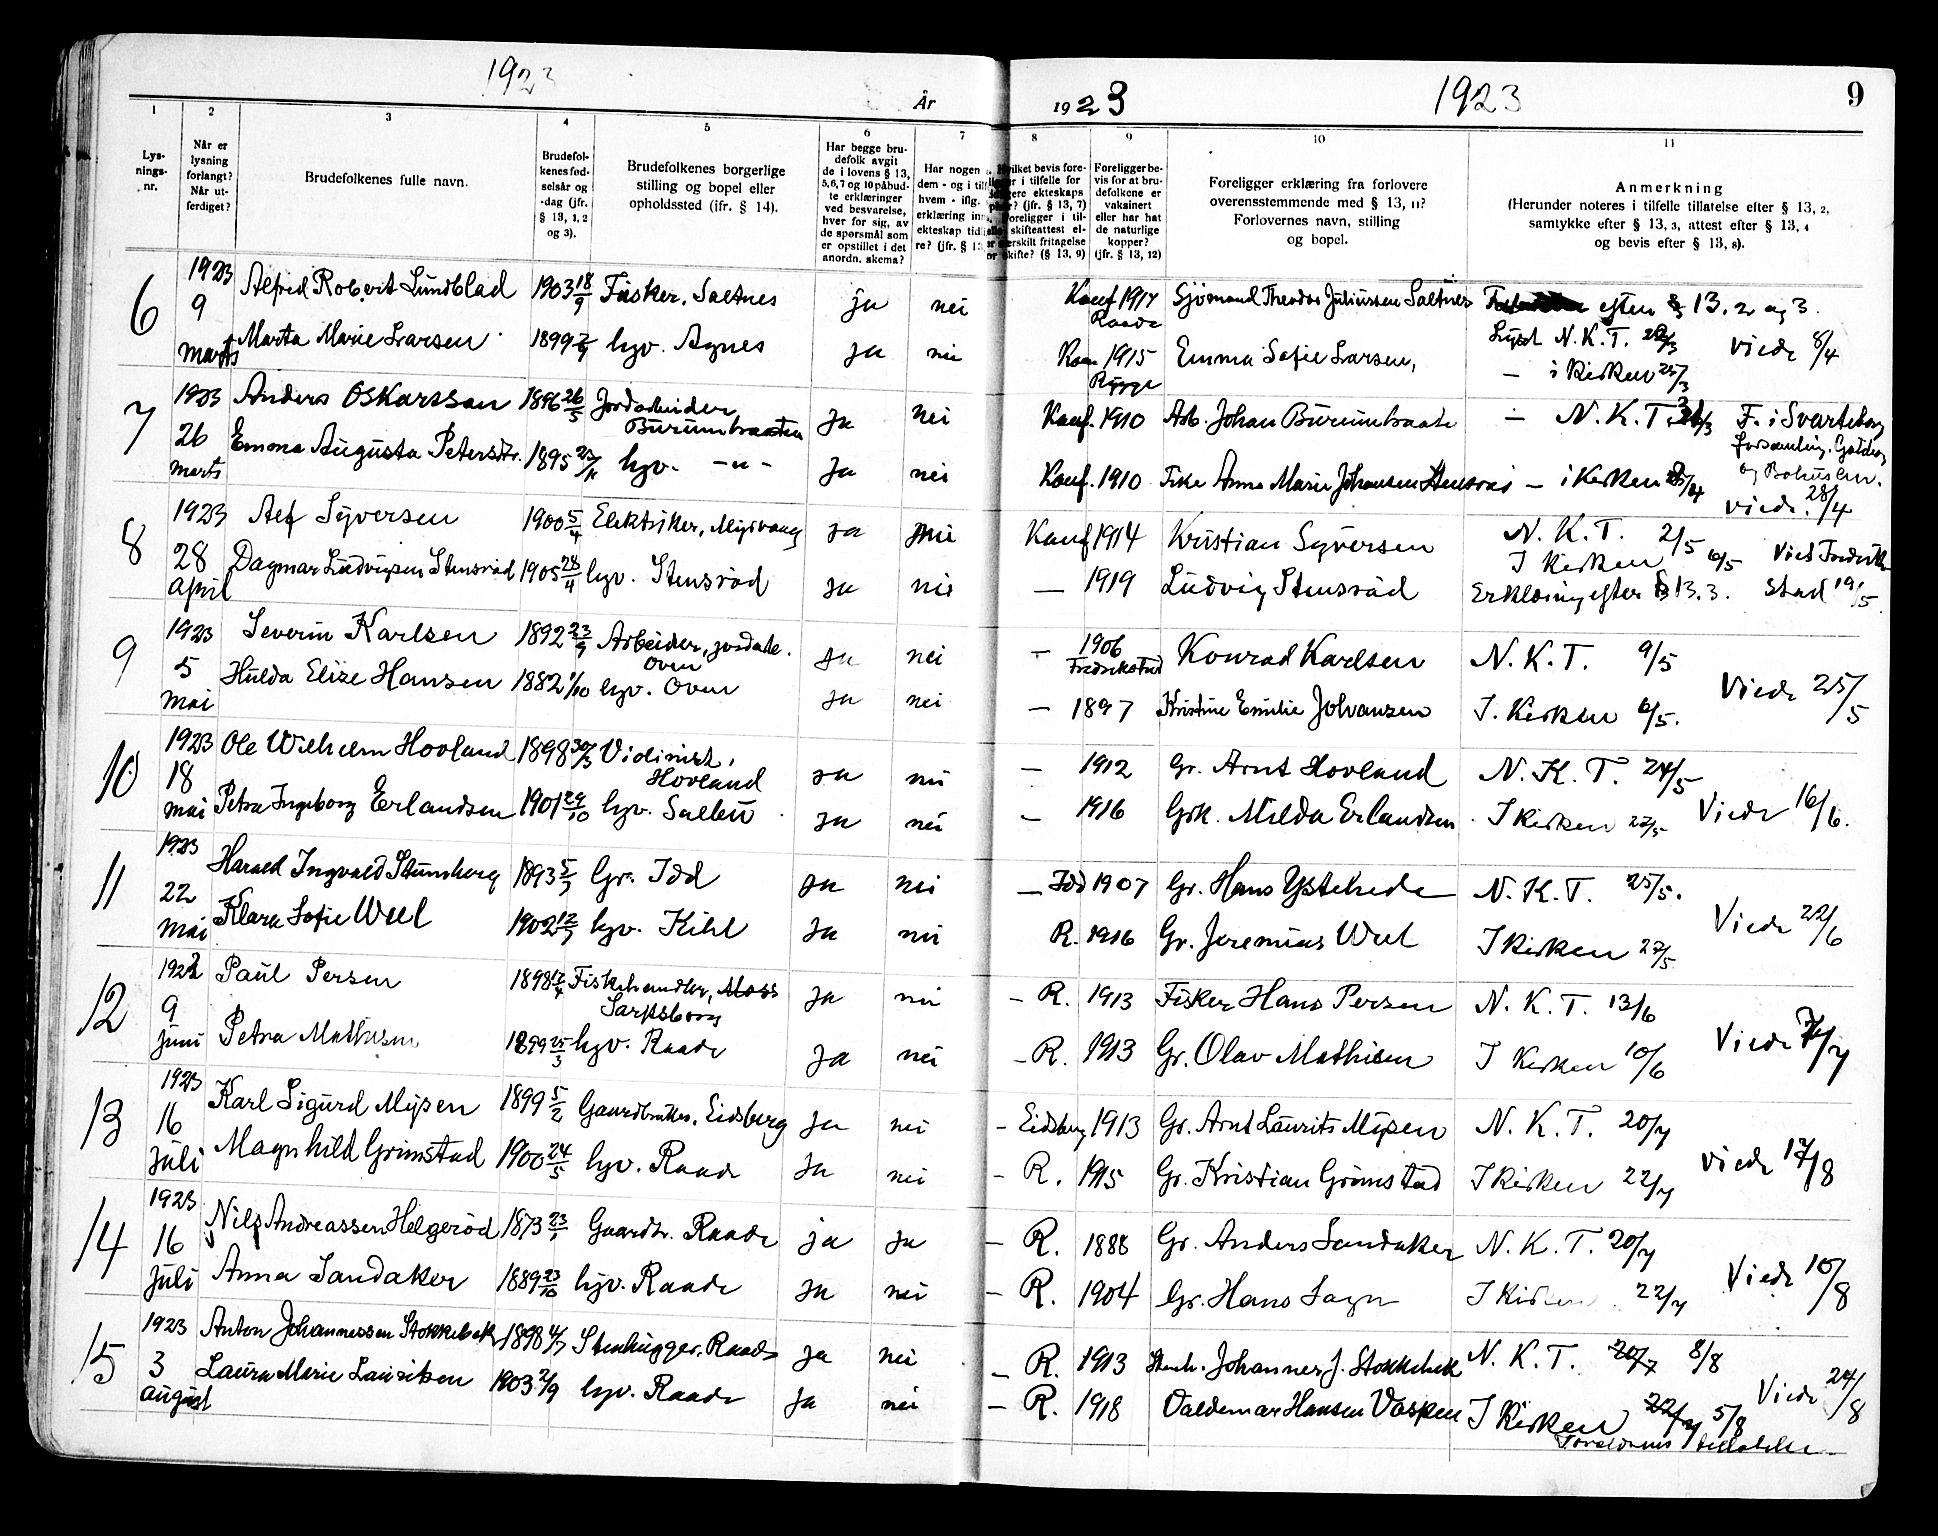 1923
År
1923
1923
9
1
2
3
4
5
6
7
8
9
10
11
Lys-
nings-
nr.
Når er
lysning
forlangt?
Når ut-
ferdiget?
Brudefolkenes fulle navn.
Brudefol-
kenes fød-
selsår og
-dag (jfr.
§ 13, 1, 2
og 3).
Brudefolkenes borgerlige
stilling og bopel eller
opholdssted (ifr. § 14).
Har begge bru-
defolk avgit
de i lovens § 13,
5, 6, 7 og 10 påbud-
te erklæringer
ved besvarelse,
hver for sig, av
de spørsmål som
er opstillet i det
anordn. skema?
Har nogen
dem - og i til
hvem - iflg.
erklæring in
ekteskap tid
re? (jfr. § 13
hvilket bevis fore-
r i tilfelle for
gere ekteskaps
? (jfr. § 13, 7)
foreligger i til-
skifteattest el-
erskilt fritagelse
or skifte? (§ 13, 9)
Foreligger be-
vis for at bru-
defolkene er
vaksinert
eller har hat
de naturlige
kopper?
(jfr. § 13, 12)
Foreligger erklæring fra forlovere
overensstemmende med § 13, 11?
Forlovernes navn, stilling
og bopel.
Anmerkning
(Herunder noteres i tilfelle tillatelse efter § 13, 2,
samtykke efter § 13, 3, attest efter § 13, 4
og bevis efter § 13, 8).
6 1923 9 marts
Alfred Robert Lundblad 1903 18/9 Fisker, Saltnes ja nei Konf 1917 Raade Sjømand Theodor Juliussen Saltnes efter § 13. 2 og 3.
Marta Marie Larsen 1899 hgv. Agnes ja nei 1915 Rygge Emma Sofie Larsen, Lyst N. K. T. Viede 8/4
— i kirken 25/3
7 1923 26 marts
Anders Oskarsson 1896 26/5 Jordarbeider Burumbraaten ja nei Konf. 1910 Arb. Johan Burumbraate — N. K. T. F. i Svarteborg
Emma Augusta Petersdtr. 1895 23/11 hgv. -"- ja nei Konf. 1910 Frk. Anna Marie Johansen — i kirken og Bohuslen.
viede 28/4
8 1923 28 April
Alf Syversen 1900 5/4 Elektriker, Mysvang ja nei Konf 1914 Kristian Syversen N. K. T. 2/5
Dagmar Ludvigsen Stensrød 1905 28/4 hgv. Stensrød ja nei — 1919 Ludvig Stensrød I Kirken 6/5 Vied Fredrik-
Erklæring efter § 13.3. stad 19/5.
9 1923 5 mai
Severin Karlsen 1892 23/9 Arbeider, jordarb. Oven ja nei — 1906 Fredrikstad Konrad Karlsen N. K. T. 9/5
Hulda Elise Hansen 1882 1/10 hgv. Oven ja nei — 1897 Kristine Emilie Johansen I. Kirken 6/5. Viede 25/5
10 1923 18 mai
Ole Wilhelm Hovland 1898 30/3 Violinist, Hovland ja nei — 1912 Gr. Arnt Hovland N. K. T. 24/5
Petra Ingeborg Erlandsen 1901 29/10 hgv. ja nei — 1916 Grk. Milda Erlandsen I Kirken 27/5 Viede 16/6.
11 1923 22 mai
Harald Ingvald Stumberg 1893 5/7 Gr. Idd ja nei — Idd 1907 Gr. Hans Ystehede N. K. T. 25/5.
Klara Sofie Weel 1902 12/7 hgv. Kihl ja nei R. 1916 Gr. Jeremias Weel I Kirken 27/5 Viede 22/6
12 1923 9 juni
Paul Persen 1898 17/4 Fiskehandler, Moss Sarpsborg ja nei — R. 1913 Fisker Hans Persen N. K. T. 13/6
Petra Mathisen 1899 25/3 hgv. Raade ja nei — R. 1913 Gr. Olav Mathisen I Kirken 10/6 Viede 7/7
13 1923 16 juli
Karl Sigurd Mysen 1899 5/2 Gaardbruker, Eidsberg ja nei — Eidsberg 1913 Gr. Arnt Laurits Mysen N. K. T. 20/7
Magnhild Grimstad 1900 24/5 hgv. Raade ja nei — R. 1915 Gr. Kristian Grimstad I Kirken 22/7 viede 17/8
14 1923 16 juli
Nils Andreassen Helgerød 1873 Gaardbr. Raade ja ja — R. 1888 Gr. Anders Sandaker N. K. T. 20/7
Anna Sandaker 1889 23/10 hgv. Raade ja nei — R. 1904 Gr. Hans Sogn I Kirken 22/7 Viede 10/8
15 1923 3 august
Anton Johannessen Stokkebek 1898 4/7 Stenhugger. Raade ja nei — R. 1913 Stenh. Johannes J. Stokkebek N. K. T. 20/7 8/8
Laura Marie Lauritsen 1903 2/9 hgv. Raade ja nei — R. 1918 Valdemar Hansen Vaspen I Kirken 22/7 5/8 Viede 24/8
Foreldrenes tillatelse